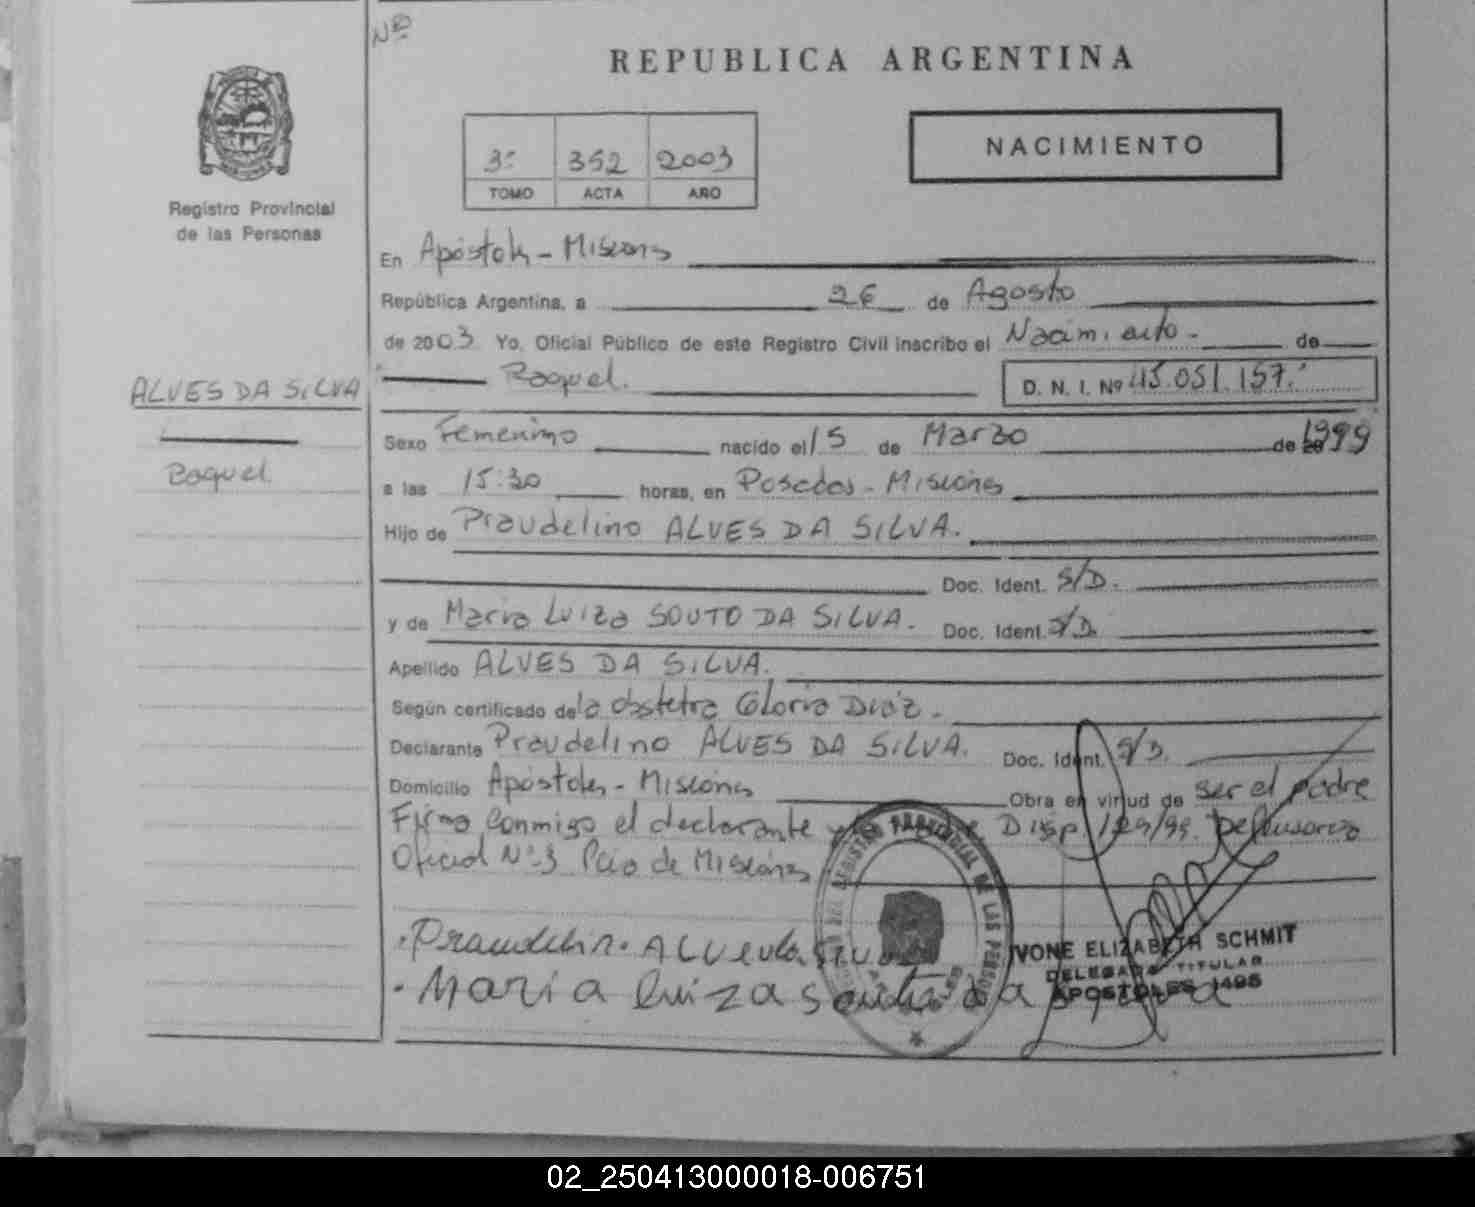 Nº
REPUBLICA ARGENTINA
NACIMIENTO
3º 352 2003
TOMO ACTA AÑO
Registro Provincial
de las Personas
En Apóstoles - Misiones
República Argentina, a 26 de Agosto
de 2003 Yo, Oficial Público de este Registro Civil inscribo el Nacimiento - de
Raquel. D. N. I. Nº 45.051.157.
ALVES DA SILVA
Raquel
Sexo Femenino nacido el 15 de Marzo de 1999
a las 15:30 horas, en Posadas - Misiones
Hijo de Praudelino ALVES DA SILVA.
Doc. Ident. S/D.
y de Maria Luiza SOUTO DA SILVA. Doc. Ident. S/D.
Apellido ALVES DA SILVA.
Según certificado de la obstetra Gloria Diaz.
Declarante Praudelino ALVES DA SILVA. Doc. Ident. S/D.
Domicilio Apóstoles - Misiones Obra en virtud de ser el padre
Firma conmigo el declarante y Disp. 129/99. Defensoria
Oficial Nº 3 Pcia de Misiones
REGISTRO PROVINCIAL DE LAS PERSONAS
Maria Luiza
IVONE ELIZABETH SCHMIT
DELEGADA TITULAR
APOSTOLES 1495
02_250413000018-006751